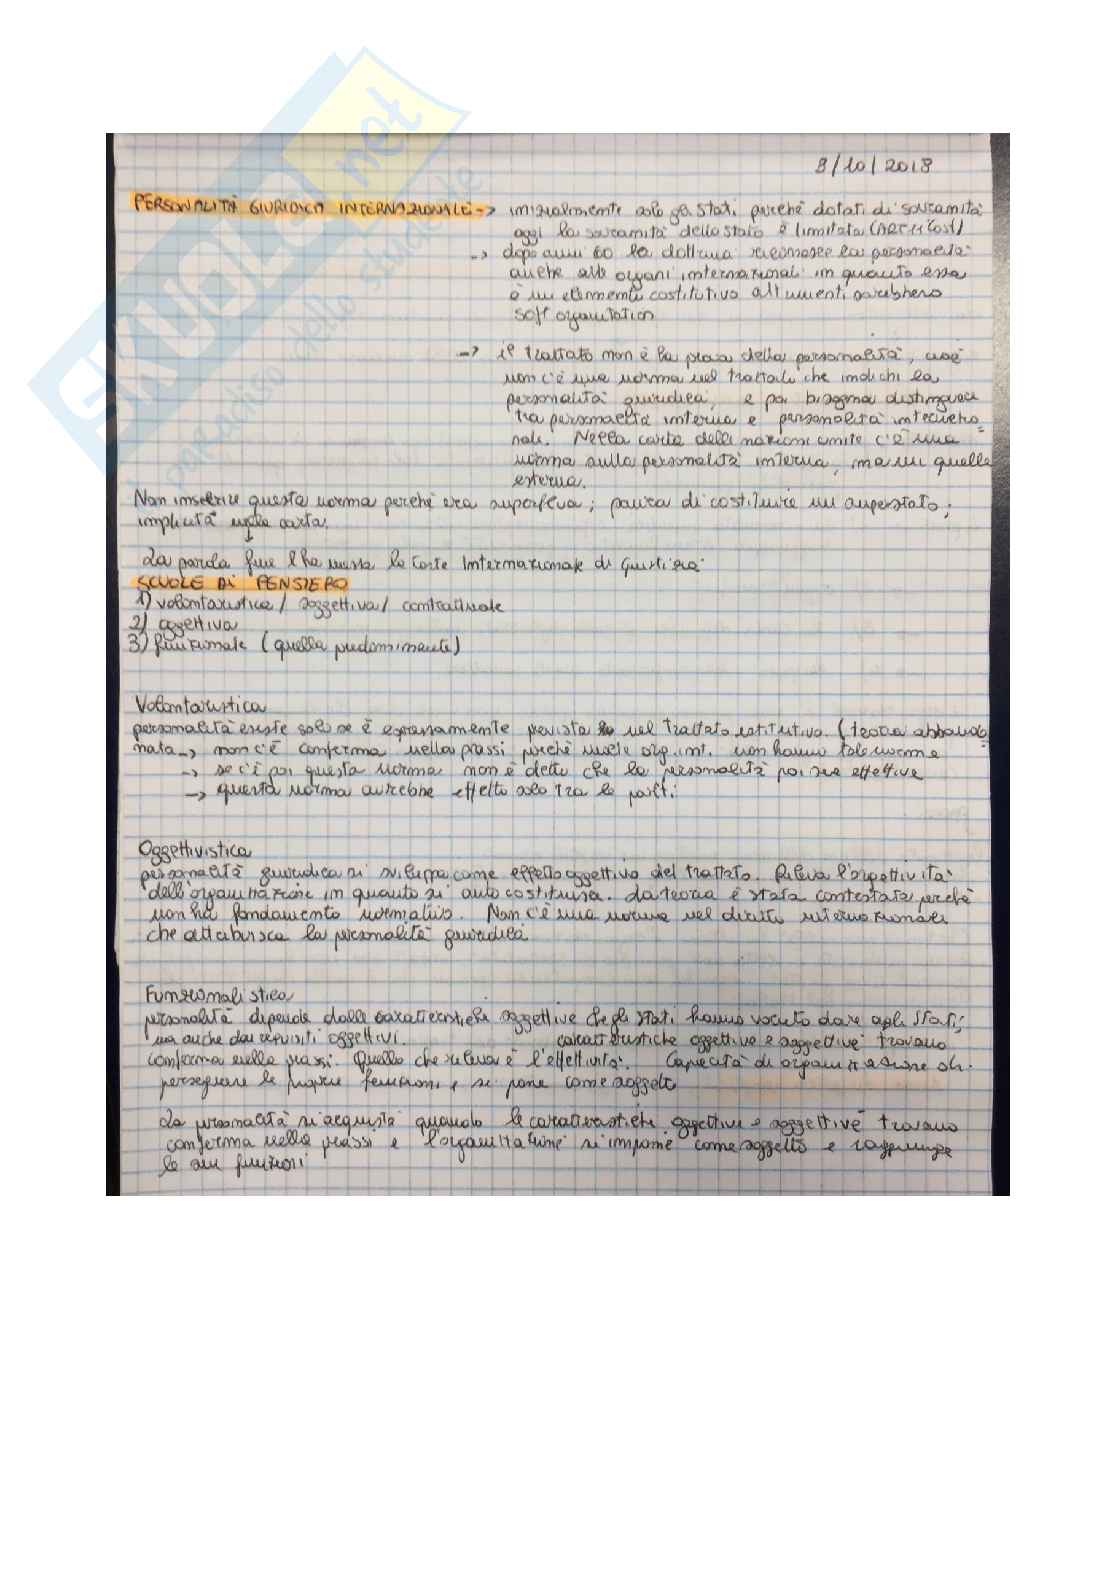 SKUOLA.net
paradiso dello studente
8/10/2018
PERSONALITÀ GIURIDICA INTERNAZIONALE -> inizialmente solo gli Stati perché dotati di sovranità
oggi la sovranità dello stato è limitata (ART 11 COST)
-> dopo anni 60 la dottrina riconosce la personalità
anche alle organi internazionali in quanto essa
è un elemento costitutivo altrimenti sarebbero
soft organitation
-> il trattato non è la prova della personalità, cioè
non c'è una norma nel trattato che indichi la
personalità giuridica, e poi bisogna distinguere
tra personalità interna e personalità internazio=
nale. Nella carta delle nazioni unite c'è una
norma sulla personalità interna, ma su quella
esterna.
Non inserire questa norma perché era superflua; paura di costituire un superstato;
implicità nella carta.
La parola fine l'ha messa la Corte Internazionale di Giustizia
SCUOLE DI PENSIERO
1) volontaristica / soggettiva / contrattuale
2) oggettiva
3) funzionale (quella predominante)
Volontaristica
personalità esiste solo se è espressamente prevista nel trattato istitutivo. (teoria abbando=
nata -> non c'è conferma nella prassi perché molte org. int. non hanno tale norme
-> se c'è poi questa norma non è detto che la personalità poi sia effettive
-> questa norma avrebbe effetto solo tra le parti
Oggettivistica
personalità giuridica si sviluppa come effetto oggettivo del trattato. Rileva l'oggettività
dell'organizzazione in quanto si auto costituisce. La teoria è stata contestata perché
non ha fondamento normativo. Non c'è una norma nel diritto internazionale
che attribuisca la personalità giuridica
Funzionalistica
personalità dipende dalle caratteristiche soggettive che gli stati hanno voluto dare agli Stati;
ma anche dai requisiti oggettivi. caratteristiche oggettive e soggettive trovano
conferma nella prassi. Quello che rileva è l'effettività. Capacità di organizzazione di
perseguire le proprie funzioni e si pone come soggetto
La personalità si acquista quando le caratteristiche oggettive e soggettive trovano
conferma nella prassi e l'organizzazione si impone come soggetto e raggiunge
le sue funzioni